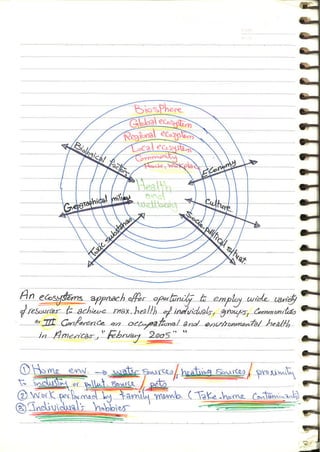 Biosphere
Global ecosystem
Regional ecosystem
Local ecosystem
Community
House, workplace
Health
and
wellbeing
Economy
Culture
An ecosystems approach offer oportunity to employ wide variety
of resources to achieve max. health of individuals, groups, Communities
III Conference on occupational and environmental health
in Americas, "February 2005"
① Home env. → water sourses / heating sources / proximity
to industry or pollut. source / pets
② Work performed by family memb. (Take-home Contaminants)
③ Individual's hobbies